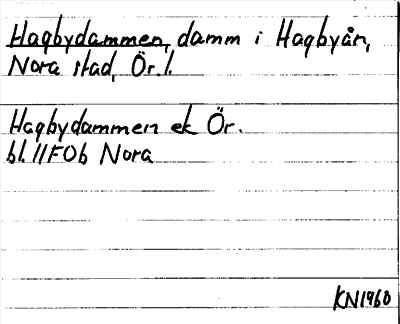 Hagbydammen, damm i Hagbyån,
Nora stad, Ör. l.
Hagbydammen ek Ör.
bl. 11F0b Nora
KN1960